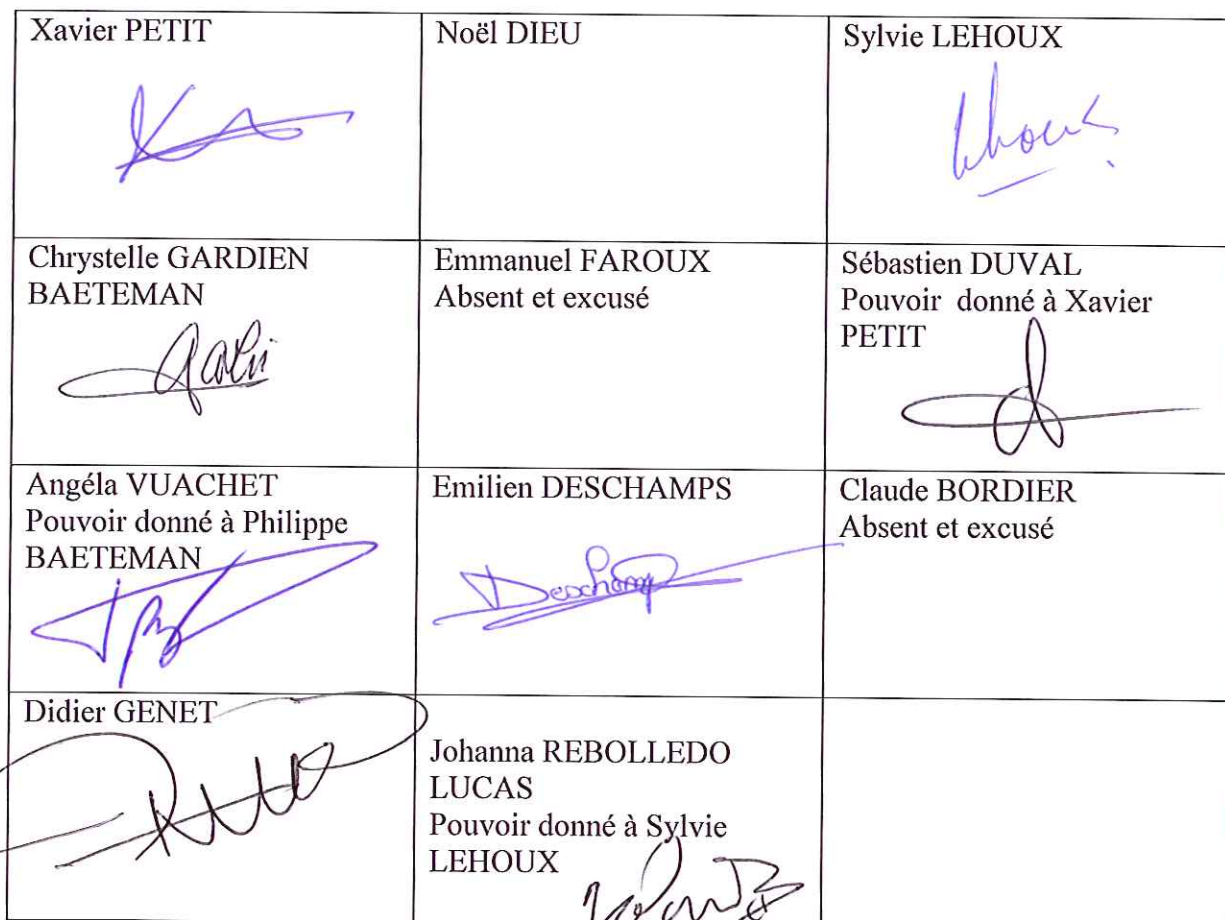 Xavier PETIT
Noël DIEU
Sylvie LEHOUX
Chrystelle GARDIEN
BAETEMAN
Emmanuel FAROUX
Absent et excusé
Sébastien DUVAL
Pouvoir donné à Xavier
PETIT
Angéla VUACHET
Pouvoir donné à Philippe
BAETEMAN
Emilien DESCHAMPS
Deschamps
Claude BORDIER
Absent et excusé
Didier GENET
Johanna REBOLLEDO
LUCAS
Pouvoir donné à Sylvie
LEHOUX